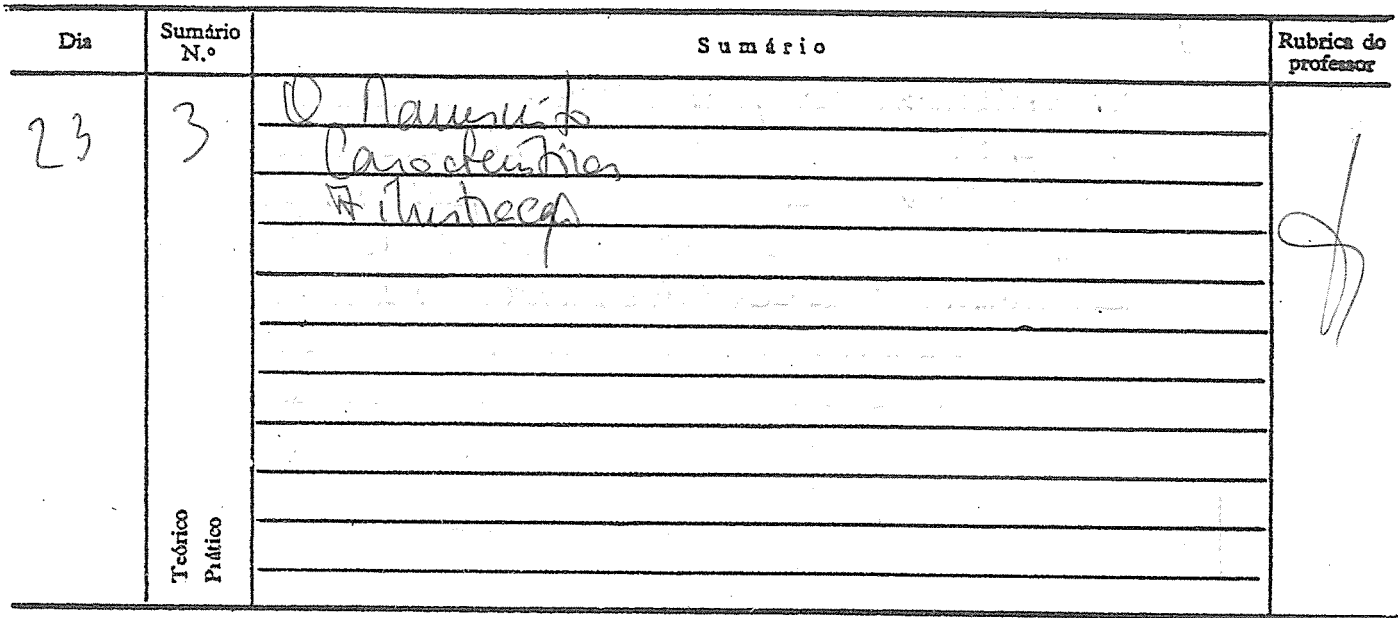 Dia
Sumário N.º
Sumário
Rubrica do professor
23
3
O Manuscrito
Características
A ilustração
Teórico
Prático